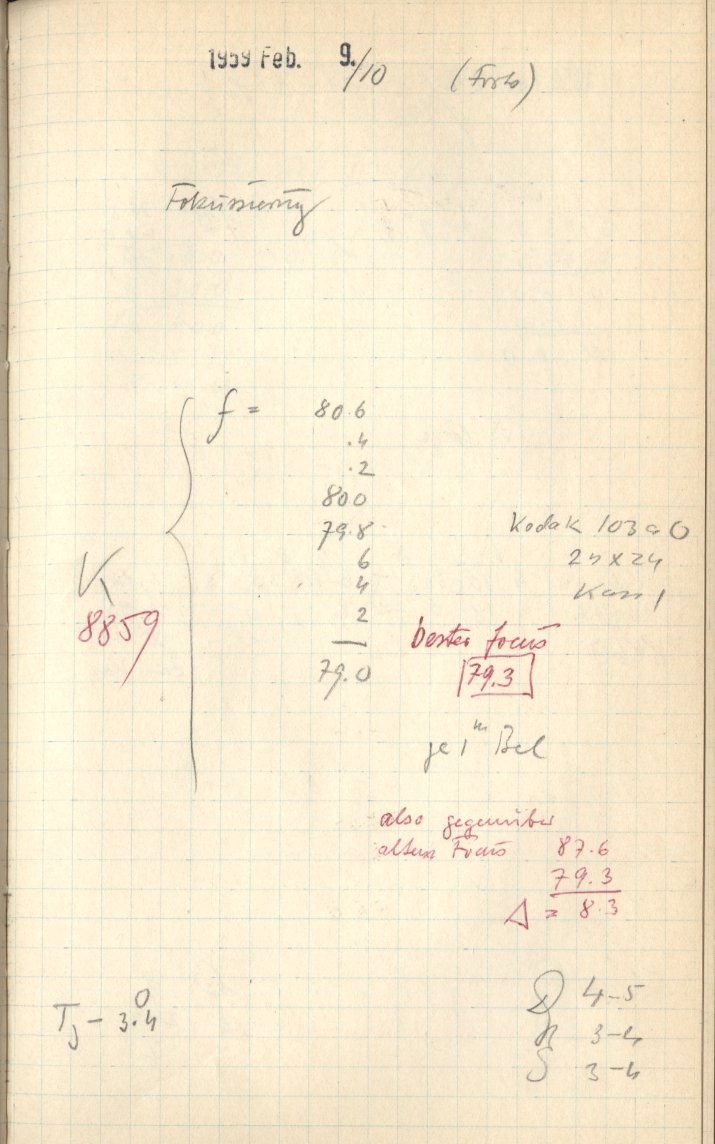 1959 Feb. 9./10 (Forts)
Fokussierung
f = 80.6
.4
.2
800
79.8
6
4
2
—
79.0
Kodak 103 a O
24 x 24
Kass 1
K
8859
bester focus
79.3
je 1ᵐ Bel
also gegenüber
altem Focus 87.6
79.3
Δ = 8.3
4-5
T_J - 3.4
3-4
S 3-4